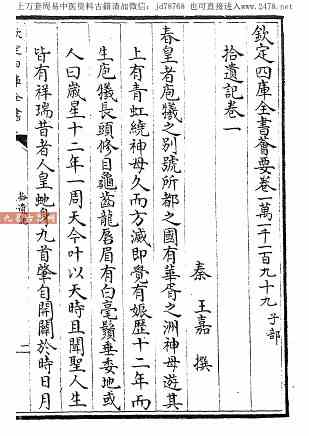 上万套周易中医资料古籍请加微信：jd78768 也可以访问www.2478.net
欽定四庫全書薈要卷一萬一千一百九十九 子部
拾遺記卷一
秦 王嘉 撰
春皇者庖犧之别號所都之國有華胥之洲神母遊其
上有青虹繞神母久而方滅即覺有娠歴十二年而
生庖犧長頭修目龜齒龍唇眉有白毫鬚垂委地或
人曰歳星十二年一周天今叶以天時且聞聖人生
皆有祥瑞昔者人皇虵身九首肇自開闢於時日月
欽定四庫全書
拾遺記
一